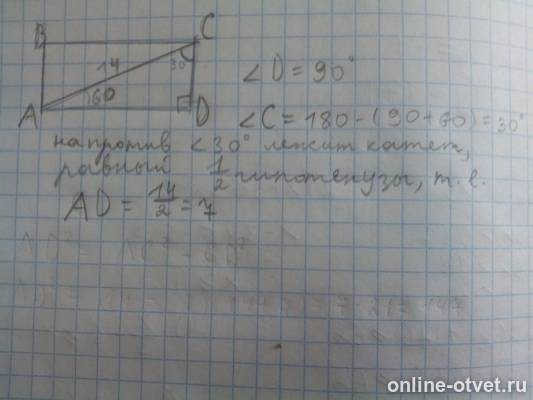 B C
14 30°
60
A D
∠D = 90°
∠C = 180 - (90 + 60) = 30°
напротив ∠30° лежит катет,
равный 1/2 гипотенузы, т. е.
AD = 14/2 = 7
online-otvet.ru